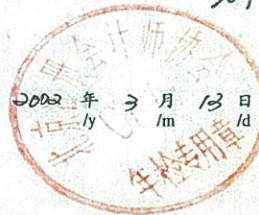 北京注册会计师协会
2002 年 3 月 13 日
/y /m /d
年检专用章